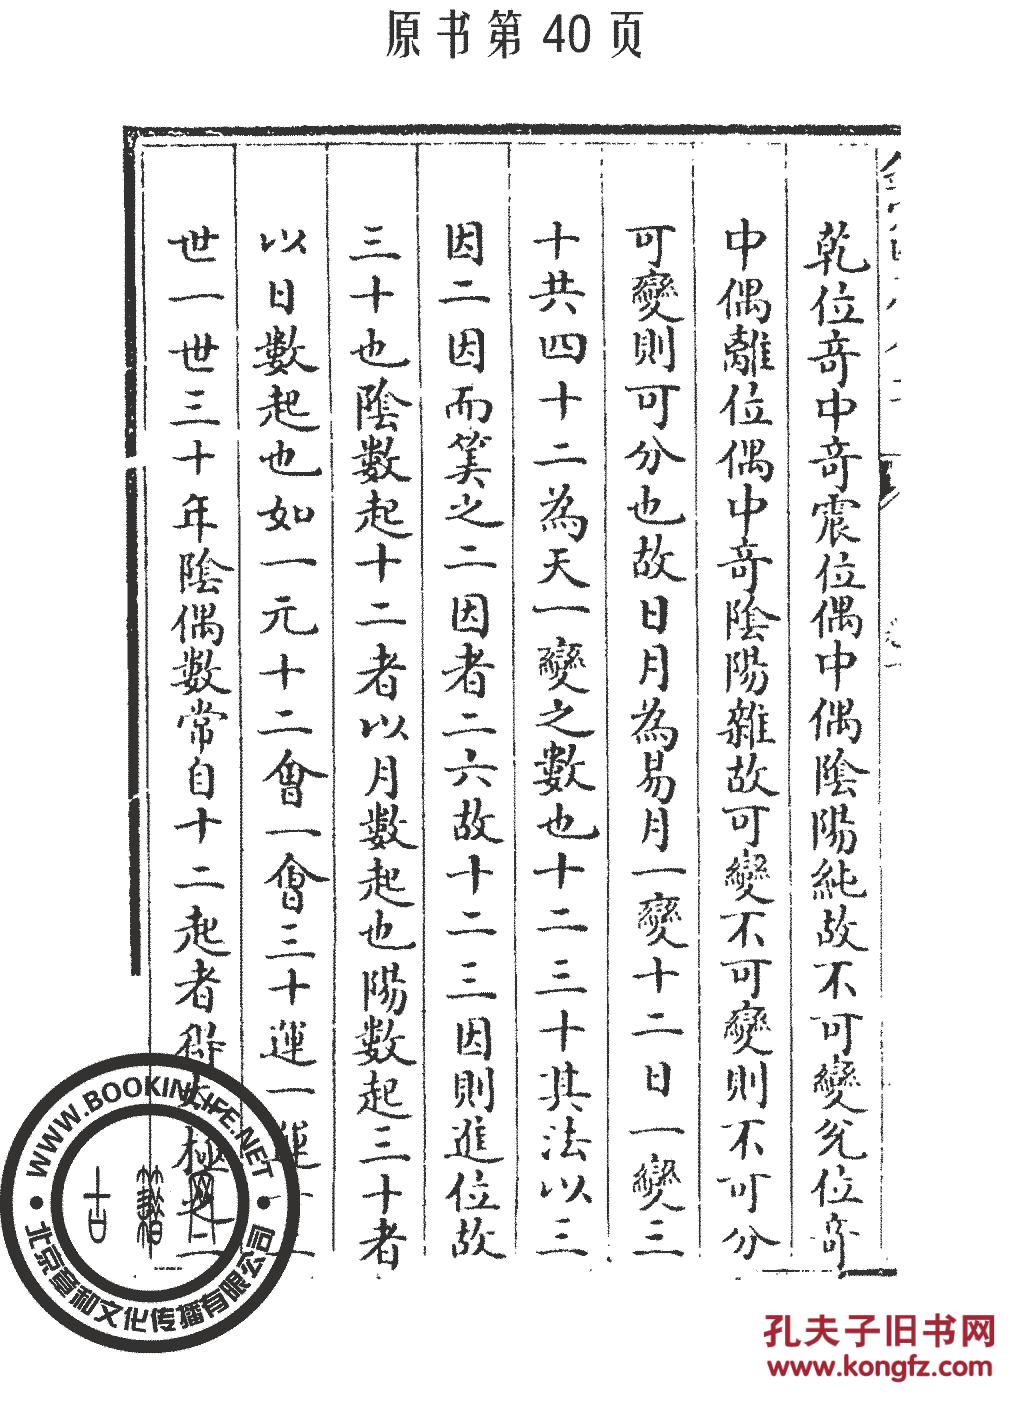 原书第40页
乾位竒中竒震位偶中偶陰陽純故不可變兊位竒
中偶離位偶中竒陰陽雜故可變不可變則不可分
可變則可分也故日月為易月一變十二日一變三
十共四十二為天一變之數也十二三十其法以三
因二因而筭之二因者二六故十二三因則進位故
三十也陰數起十二者以月數起也陽數起三十者
以日數起也如一元十二會一會三十運一運十二
世一世三十年陰偶數常自十二起者
極之二
WWW.BOOKINLIFE.NET
北京意和文化传播有限公司
古籍网
孔夫子旧书网
www.kongfz.com